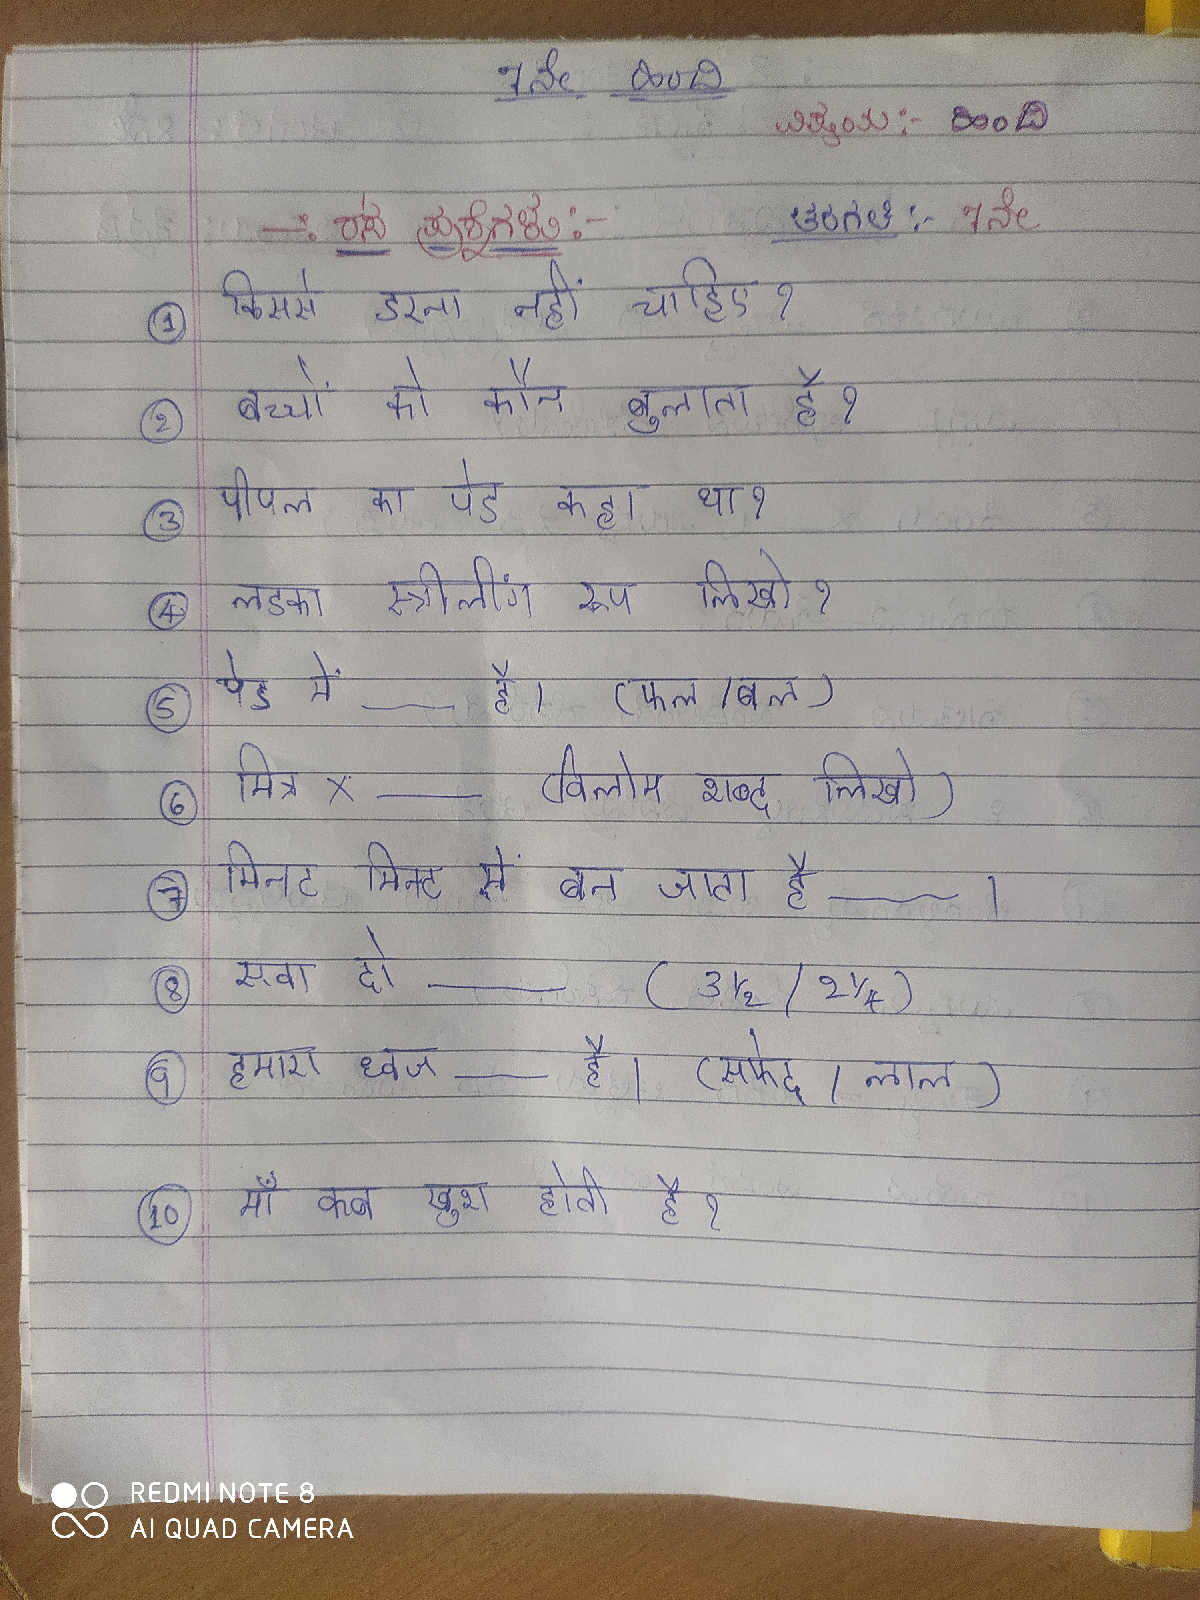 7ನೇ ಹಿಂದಿ
ವಿಷಯ:- ಹಿಂದಿ
—: ರಸ ಪ್ರಶ್ನೆಗಳು:- ತರಗತಿ:- 7ನೇ
① किससे डरना नहीं चाहिए?
② बच्चों को कौन बुलाता है?
③ पीपल का पेड कहा था?
④ लडका स्त्रीलींग रूप लिखो?
⑤ पेड में ___ है। (फल/बल)
⑥ मित्र x ___ (विलोम शब्द लिखो)
⑦ मिनट मिनट में बन जाता है ___।
⑧ सवा दो ___ (3½ / 2¼)
⑨ हमारा ध्वज ___ है। (सफेद / लाल)
⑩ माँ कब खुश होती है?
REDMI NOTE 8
AI QUAD CAMERA